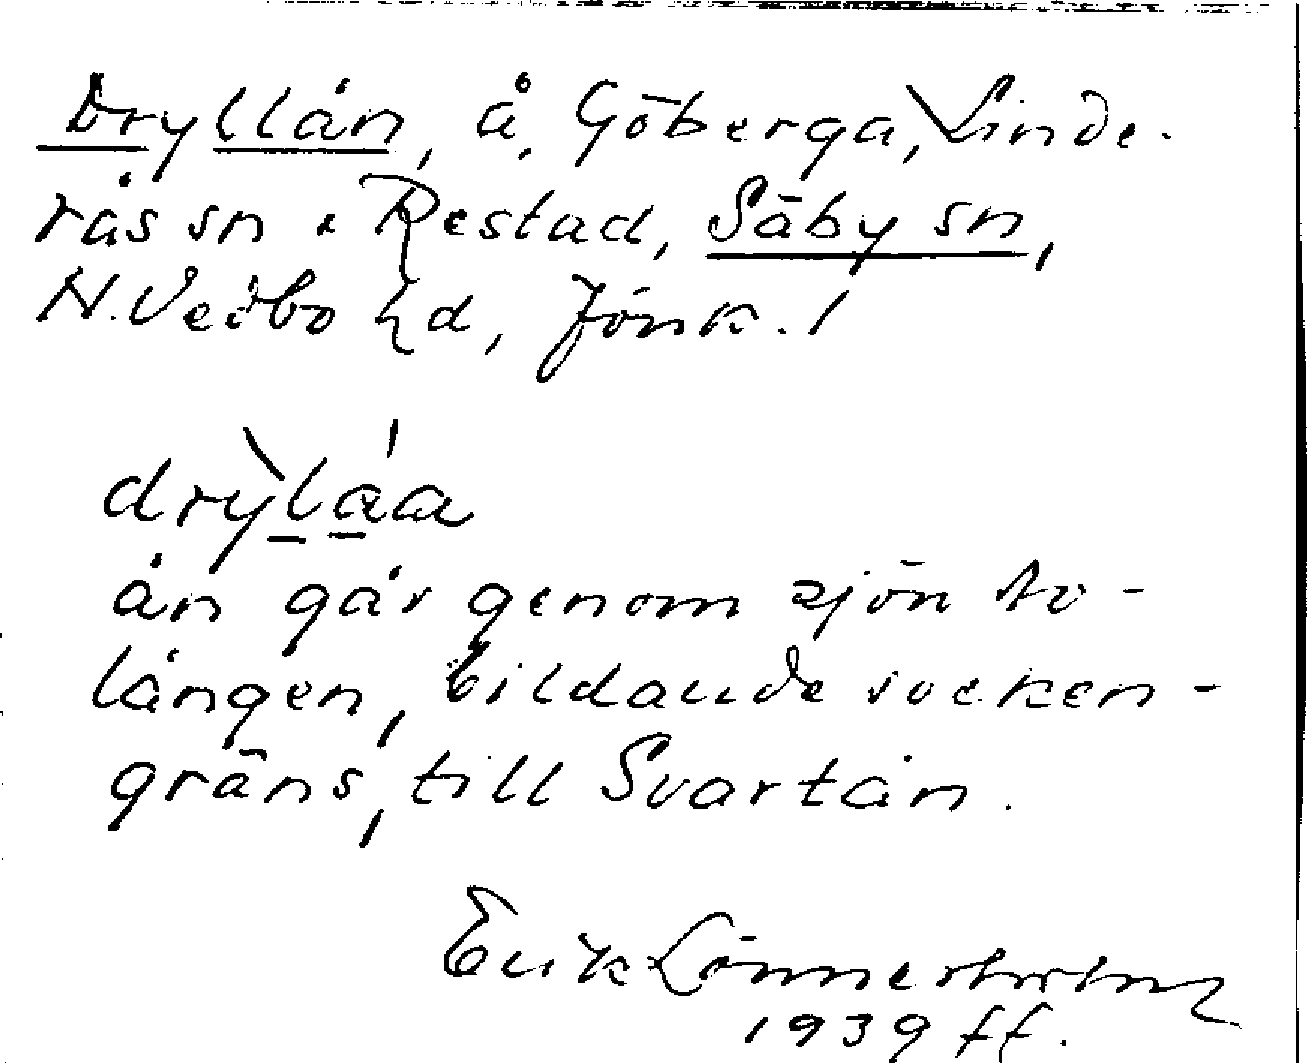 Dryllån, å, Göberga, Linde-
rås sn o Restad, Säby sn,
N. Vedbo hd, Jönk. l
drỳlåa
ån går genom sjön No-
lången, bildande socken-
gräns, till Svartån.
Erik Lönnerholm
1939 ff.